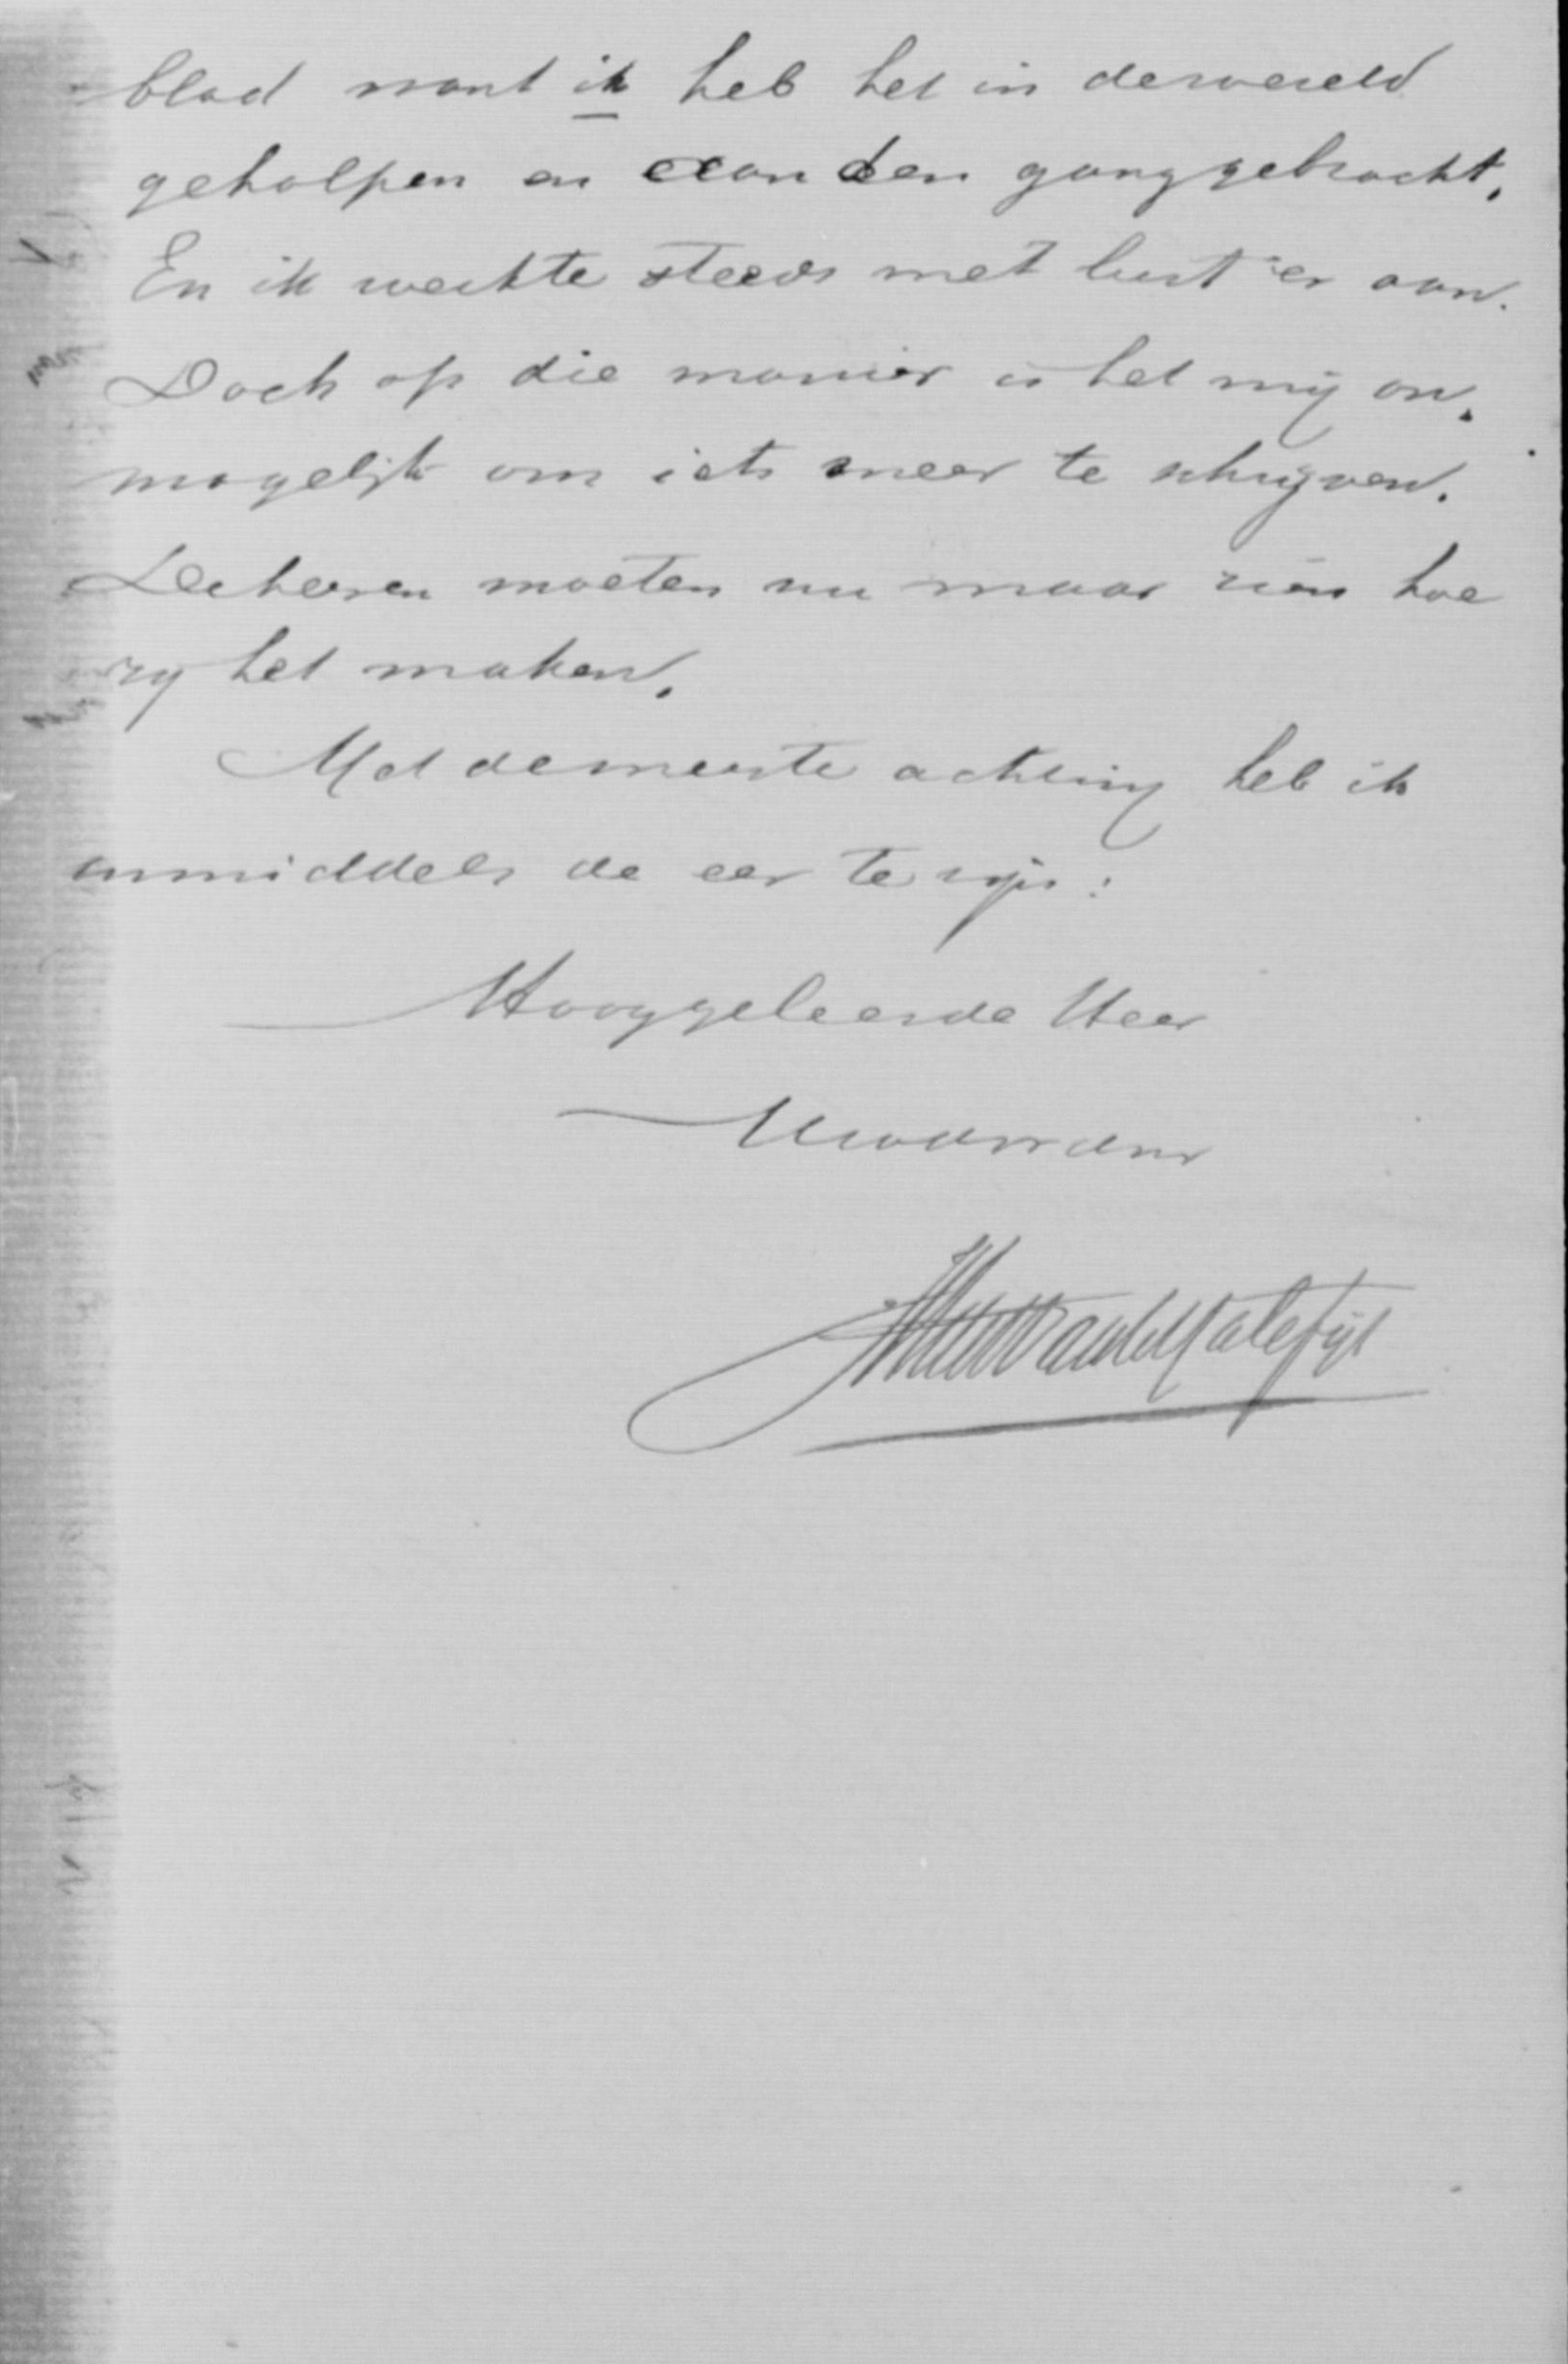 blad want ik heb het in de wereld
geholpen en aan den gang gebracht.
En ik werkte steeds met lust er aan.
Doch op die manier is het mij on-
mogelijk om iets meer te schrijven.
De heeren moeten nu maar zien hoe
zij het maken.
Met de meeste achting heb ik
inmiddels de eer te zijn:
Hooggeleerde Heer
Uw dw dnr